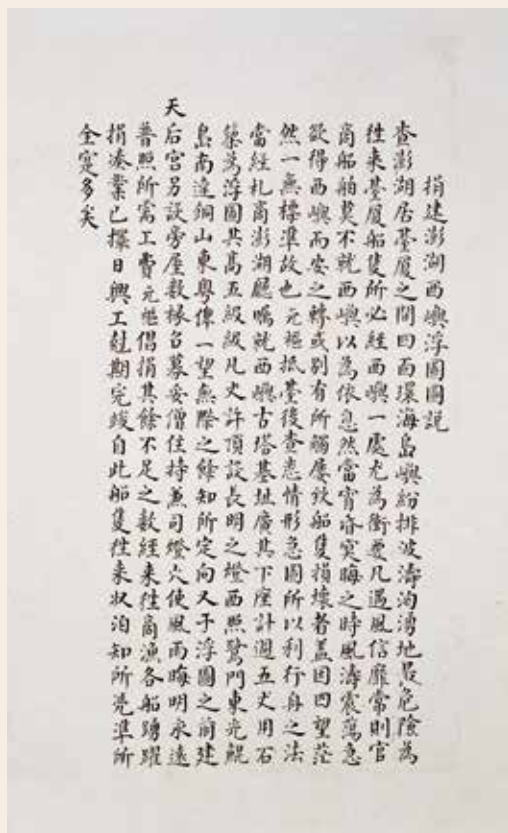 捐建澎湖西嶼浮圖圖說
查澎湖居臺廈之間四面環海島嶼紛排波濤洶湧地最危險為
往來臺廈船隻所必經西嶼一處尤為衝要凡遇風信靡常則官
商船舶莫不就西嶼以為依息然當宵昏冥晦之時風濤震蕩急
欲得西嶼而安之轉或別有所觸屢致船隻損壞者蓋因四望茫
然一無標準故也元樞抵臺後查悉情形急圖所以利行舟之法
當經札商澎湖廳囑就西嶼古塔基址廣其下座計週五丈用石
築為浮圖其高五級級凡丈許頂設長明之燈西照鷺門東光鯤
島南達銅山東粵俾一望無際之餘知所定向又于浮圖之前建
天后宮另設旁屋數椽召募妥僧住持兼司燈火使風雨晦明永遠
普照所需工費元樞倡捐其餘不足之數經來往商漁各船踴躍
捐湊業已擇日興工尅期完竣自此船隻往來收泊知所憑準所
全寔多矣